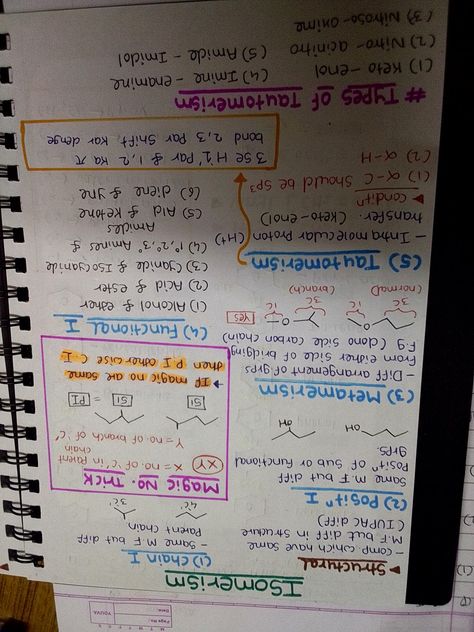 ISomerism
▸ Structural
- comp. which have same
M.F but diff in structure
(IUPAC diff)
(1) Chain I
- Same M.F but diff
Parent chain
4c'
3c'
(2) Positⁿ I
Same M.F but diff
Positⁿ of sub or functional
grps.
OH
OH
Magic No. Trick
XY
X = no. of 'c' in Parent
chain
Y = no. of branch of 'c'
51
51
= PI
→ If magic no are same
then P I otherwise C I
(3) Metamerism
- Diff arrangement of grps
from either side of bridging
F.g (dono side carbon chain)
3C
1C
3C
1C
YES
(normal)
(branch)
(4) Functional I
(1) Alcohol & ether
(2) Acid & ester
(3) Cyanide & Isocyanide
(4) 1°, 2°, 3° Amines &
Amides
(5) Ald & Ketone
(6) diene & yne
(5) Tautomerism
- Intra molecular Proton (H+)
transfer. (keto-enol)
◂ conditⁿ
(1) α-C should be sp³
(2) α-H
3 Se H 1' Par & 1,2 ka π
bond 2,3 Par Shift kar denge
# Types of Tautomerism
(1) Keto - enol
(2) Nitro - acinitro
(3) Nitroso - oxime
(4) Imine - enamine
(5) Amide - Imidol
Page No.
Date:
YOUVA